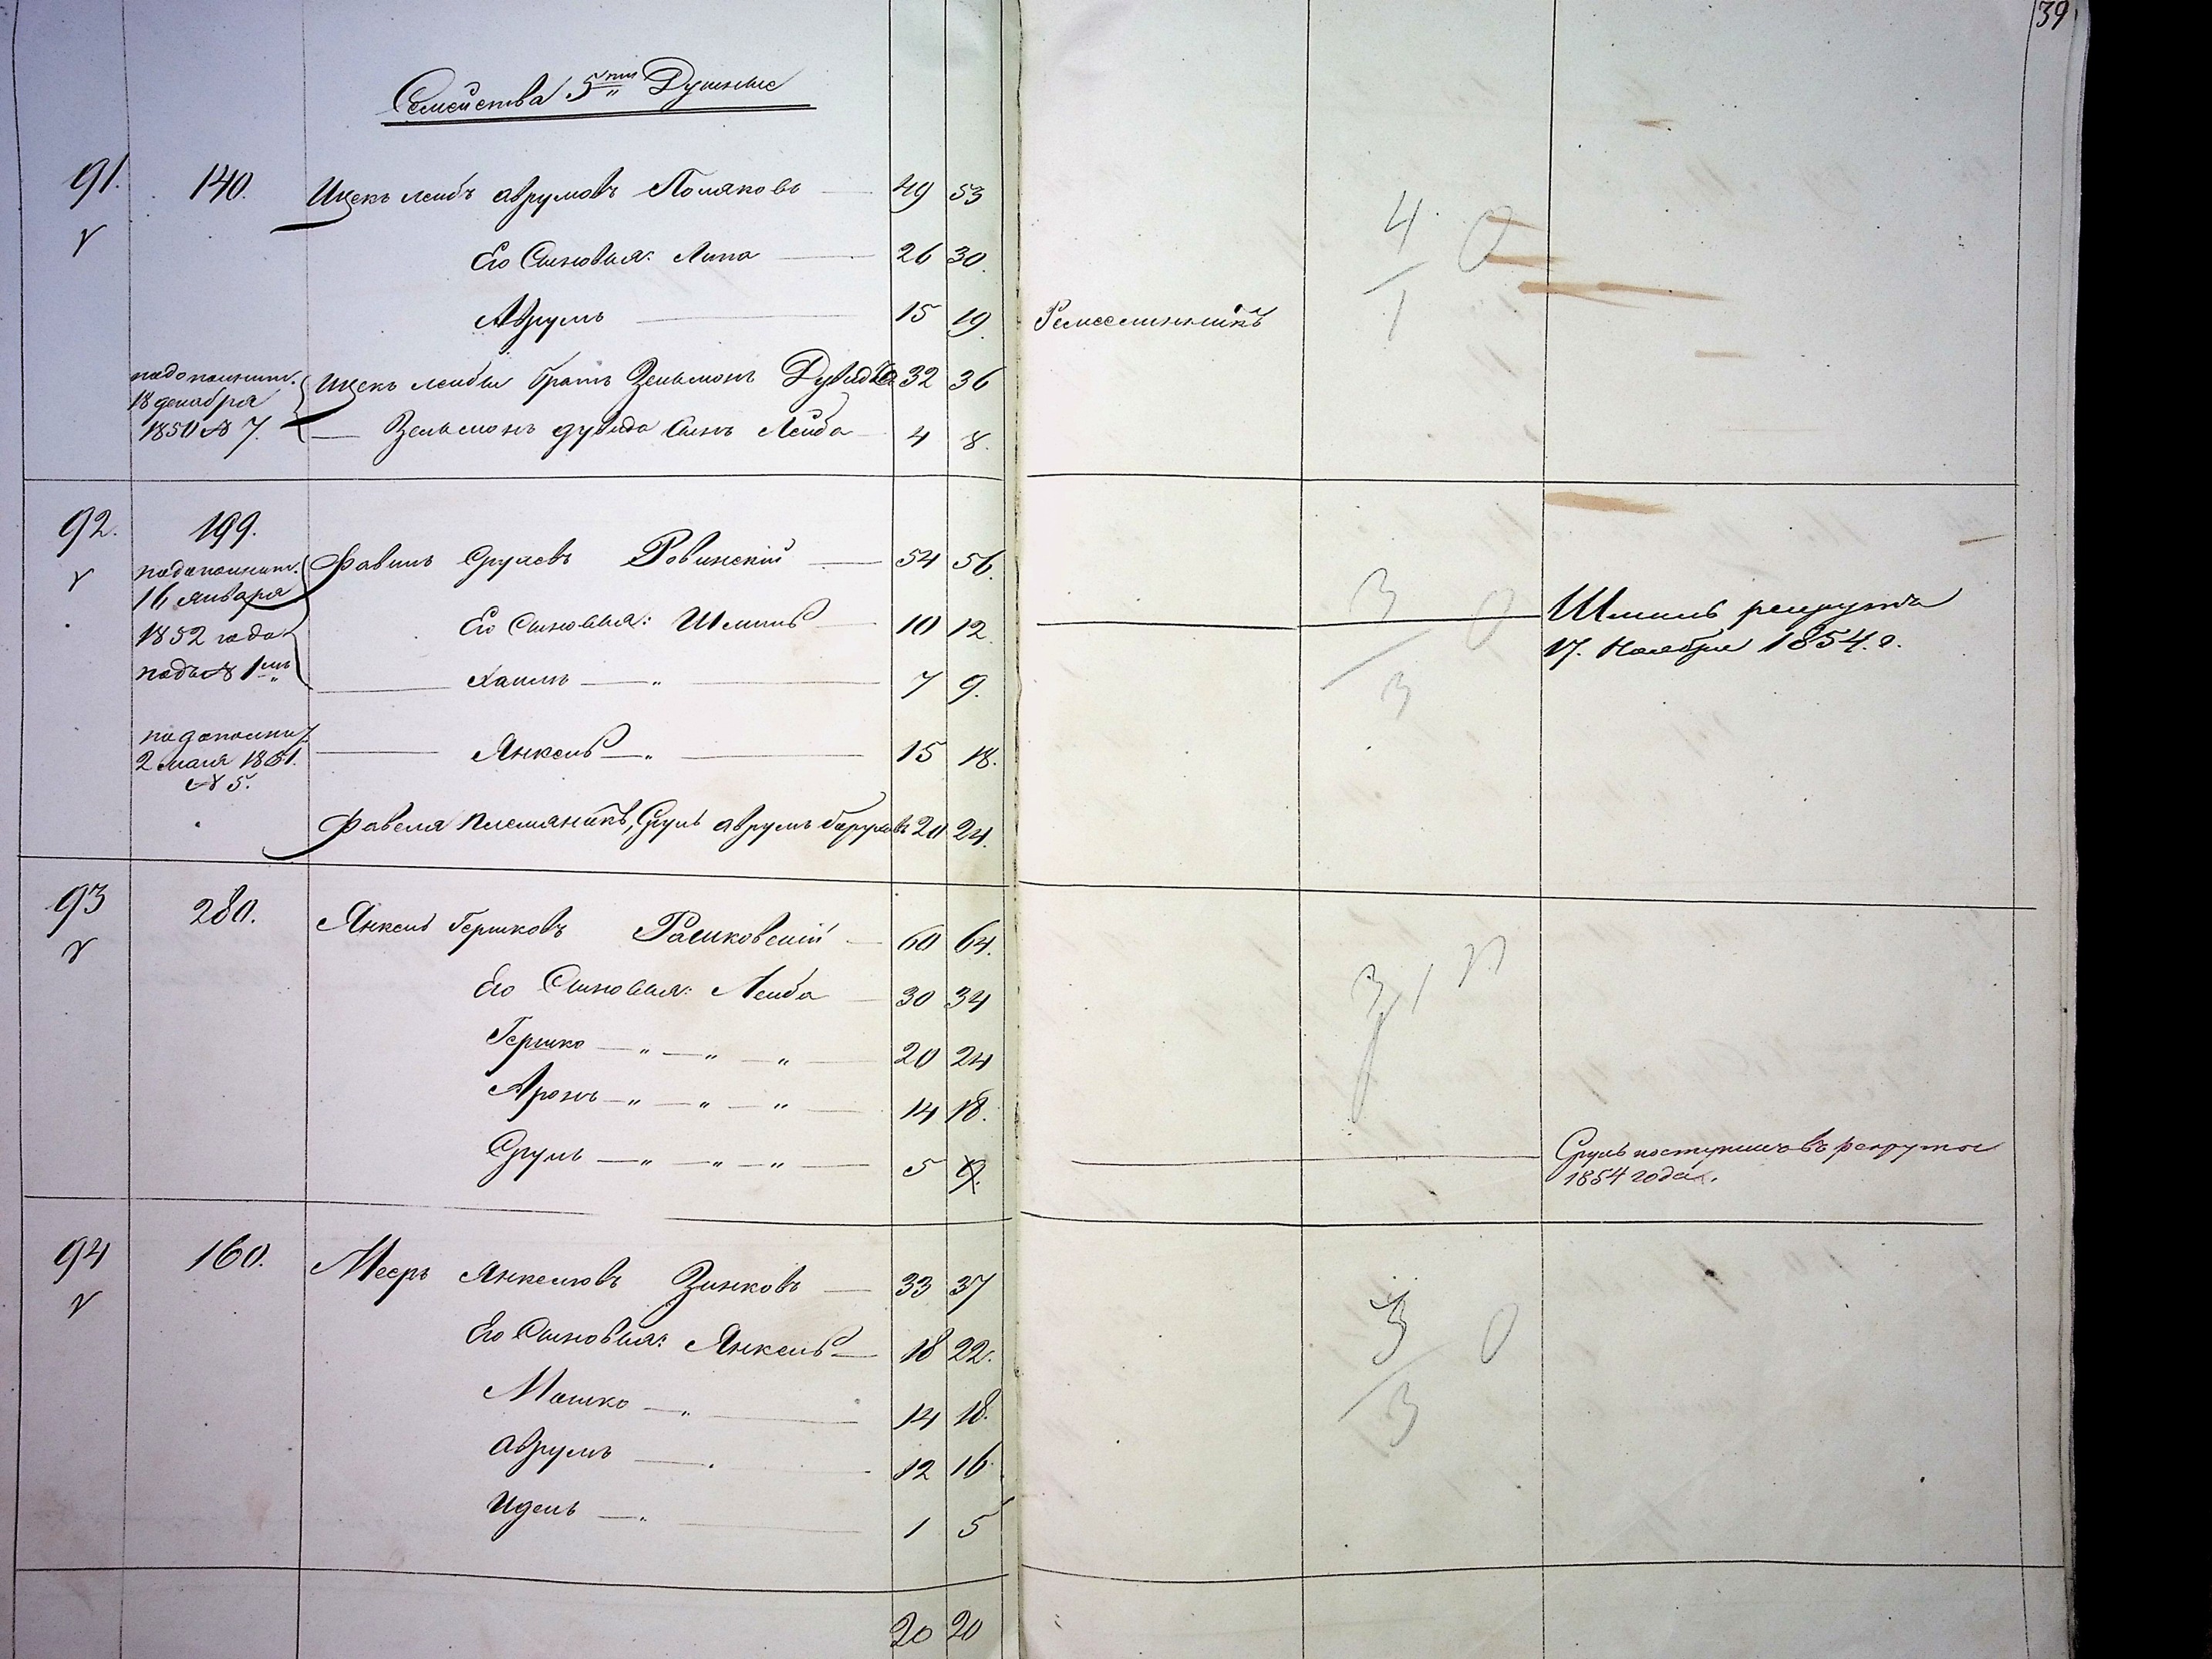 39
Семейства 5ти Душные
91. 140. Ицекъ Лейбъ Аврумовъ Поляковъ 49 53
Его Сыновья: Липа 26 30.
Аврумъ 15 19. Ремесленникъ
4 0
1
по дополнит. Ицекъ Лейбы братъ Зельманъ Дувидъ 32 36
18 декабря
1850 № 7. Зельманъ Дувида Сынъ Лейба 4 8.
92. 199.
по дополнит. Фавель Срулевъ Ровинскій 54 56.
16 января
1852 года Его Сыновья: Шмиль 10 12. Шмиль рекрута
17. Ноября 1854. г.
подъ № 1мъ Хаимъ 7 9.
3 0
3
по дополнит.
2 мая 1851. Янкель 15 18.
№ 5.
Фавеля племяникъ, Сруль Аврумъ Боруховъ 20 24.
93 280. Янкель Гершковъ Рашковскій 60 64.
Его Сыновья: Лейба 30 34
3 1
Гершко 20 24
Аронъ 14 18.
Сруль 5 9. Сруль поступилъ въ рекруты
1854 года.
94 160. Мееръ Янкелювъ Зинковъ 33 37
Его Сыновья: Янкель 18 22.
3 0
3
Мошко 14 18.
Аврумъ 12 16
Идель 1 5
20 20